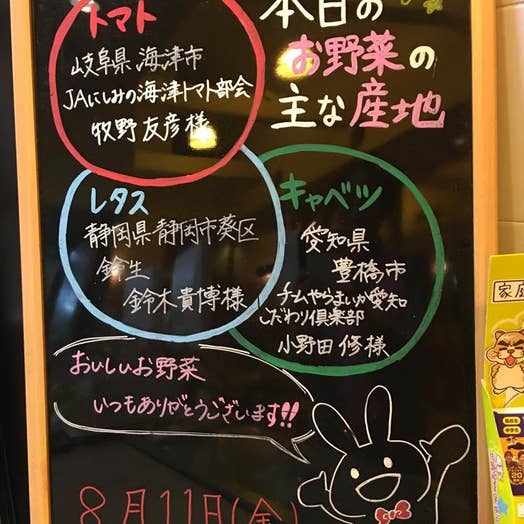 本日の
お野菜の
主な産地
トマト
岐阜県海津市
JAにしみの海津トマト部会
牧野友彦様
レタス
静岡県静岡市葵区
鈴生
鈴木貴博様
キャベツ
愛知県
豊橋市
チームやらまいか愛知
こだわり倶楽部
小野田修様
おいしいお野菜
いつもありがとうございます!!
8月11日(金)
家庭